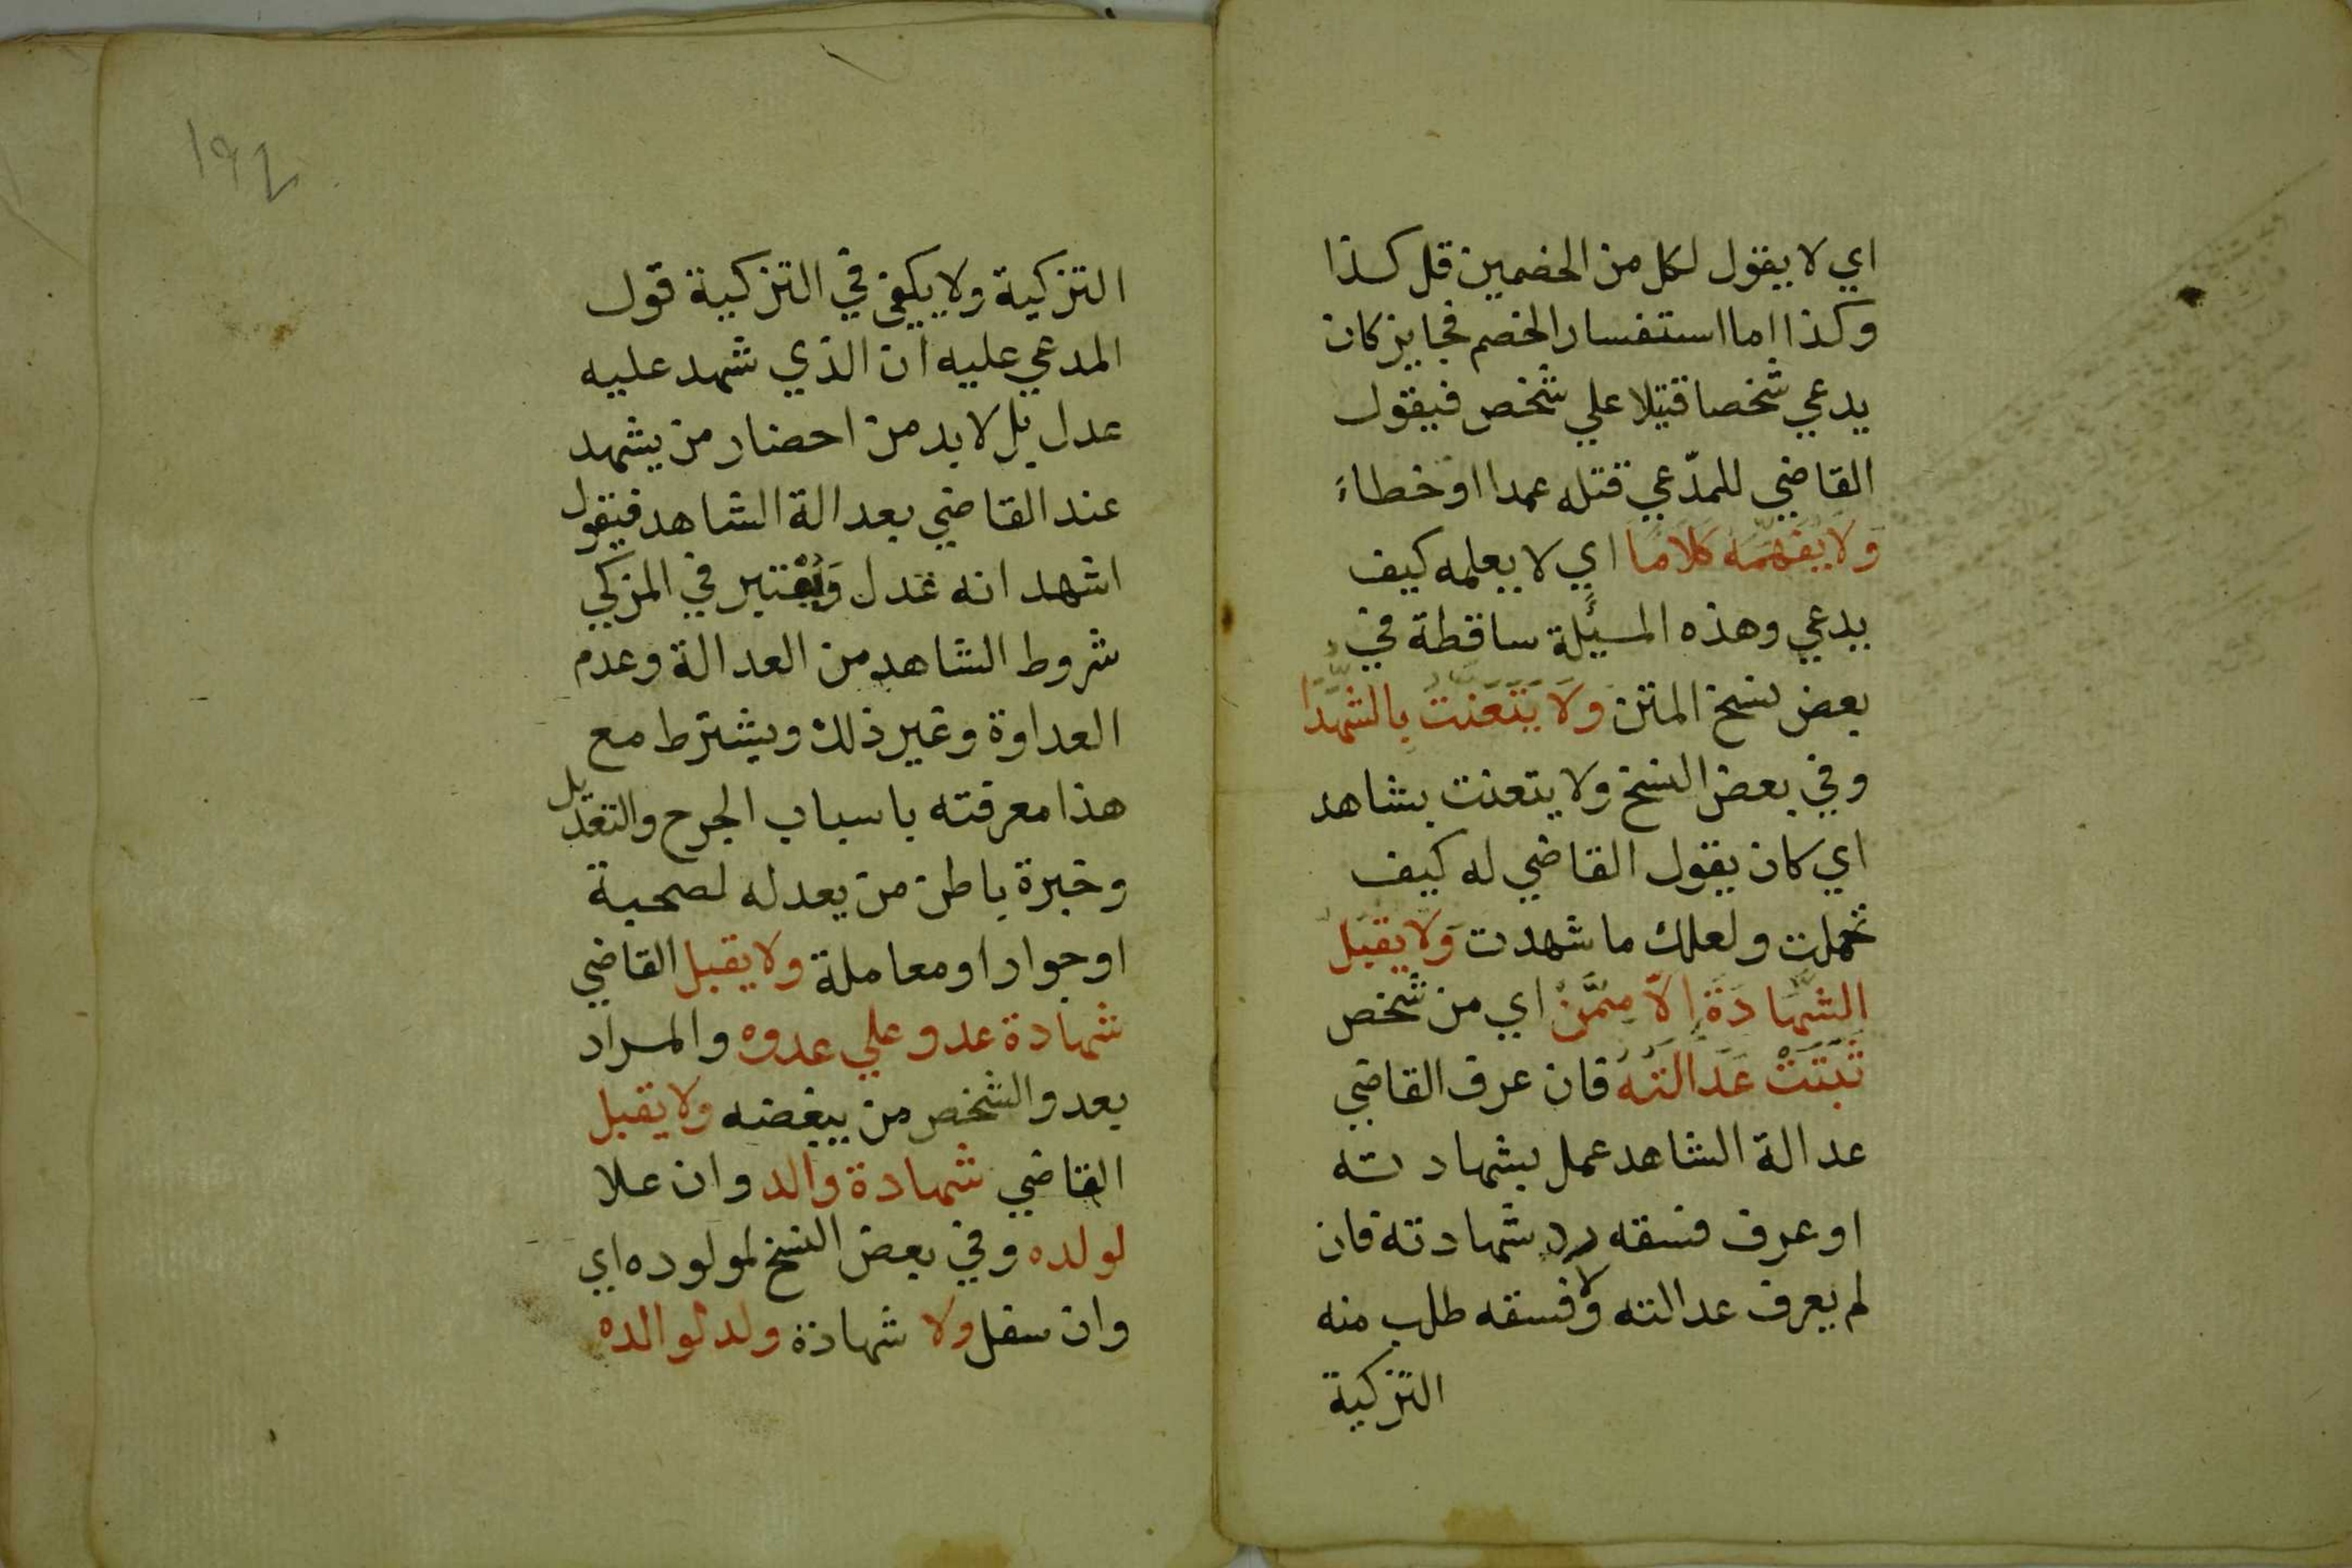 اي لا يقول لكل من الخصمين قل كذا
وكذا اما استفسار الخصم فجايز كان
يدعي شخصا قتيلا علي شخص فيقول
القاضي للمدّعي قتله عمدا او خطاءً
وَلا يُفَهِّمُه كلامًا اي لا يعلمه كيف
يدعي وهذه المسئلة ساقطة في
بعض نسخ المتن وَلا يَتَعَنَّتُ بالشُّهَدَا
وفي بعض النسخ ولا يتعنت بشاهد
اي كان يقول القاضي له كيف
تحملت ولعلك ما شهدت وَلا يَقبَلُ
الشَّهَادَةَ اِلاَّ مِمَّنْ اي من شخص
ثَبَتَتْ عَدَالَتُهُ فان عرف القاضي
عدالة الشاهد عمل بشهادته
او عرف فسقه رد شهادته فان
لم يعرف عدالته ولا فسقه طلب منه
التزكية
١٩٤
التزكية ولا يكفي في التزكية قول
المدعي عليه ان الذي شهد عليه
عدل بل لا بد من احضار من يشهد
عند القاضي بعدالة الشاهد فيقول
اشهد انه عدل وَيُعْتبر في المزكي
شروط الشاهد من العدالة وعدم
العداوة وغير ذلك ويشترط مع
هذا معرفته باسباب الجرح والتعديل
وخبرة باطن من يعدله لصحبة
او جوار او معاملة ولا يقبل القاضي
شهادة عدو علي عدوه والمراد
بعدو الشخص من يبغضه ولا يقبل
القاضي شهادة والد وان علا
لولده وفي بعض النسخ لمولوده اي
وان سفل ولا شهادة ولد لوالده